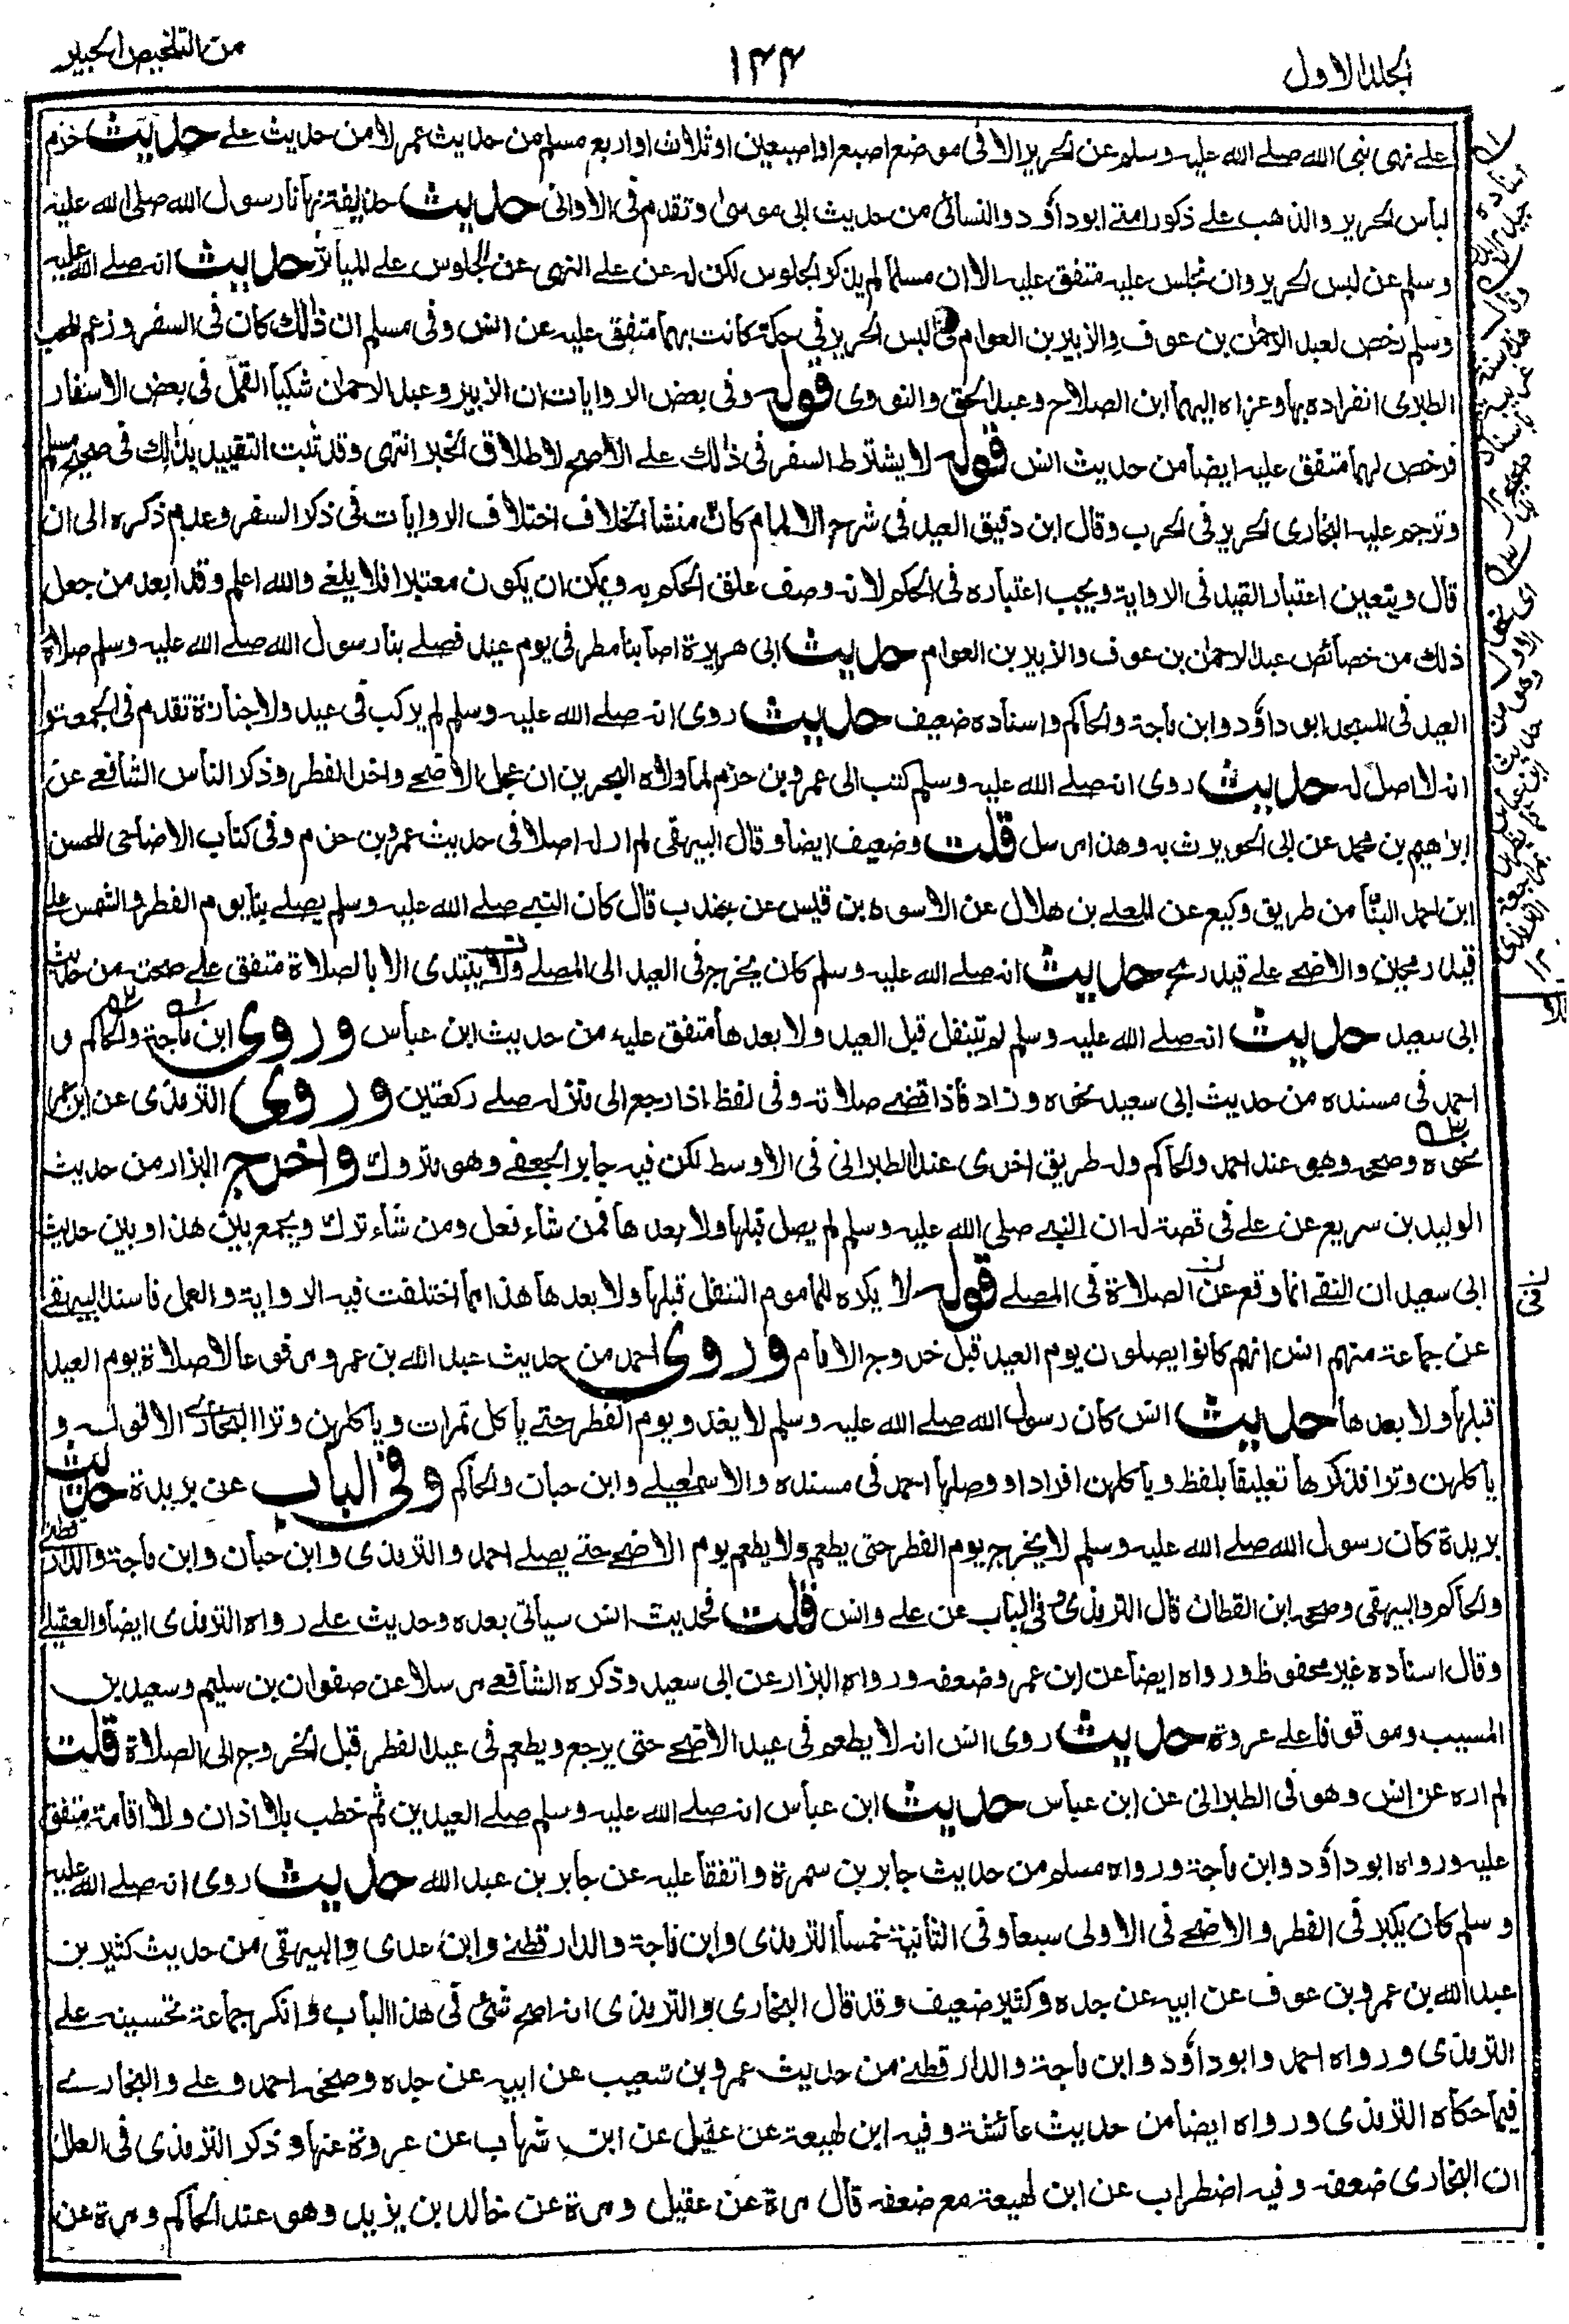 الجلد الاول
١٤٤
من التلخيص الحبير
على نهى نبى الله صلے الله عليه وسلم عن الحرير الا فى موضع اصبع او اصبعين او ثلاث او اربع مسلم من حديث عمر لا من حديث على حديث حرم
لباس الحرير والذهب على ذكور امتى ابوداؤد والنسائى من حديث ابى موسى وتقدم فى الاوانى حديث حذيفة نهانا رسول الله صلى الله عليه
وسلم عن لبس الحرير وان نجلس عليه متفق عليه الا ان مسلما لم يذكر الجلوس لكن له عن على النهى عن الجلوس على المياثر حديث انه صلے الله عليه
وسلم رخص لعبد الرحمن بن عوف والزبير بن العوام فى لبس الحرير فى حكة كانت بهما متفق عليه عن انس وفى مسلم ان ذلك كان فى السفر وزعم المحب
الطبرى انفراده بها وعزاه اليهما ابن الصلاح وعبد الحق والنووى قوله وفى بعض الروايات ان الزبير وعبد الرحمن شكيا القمل فى بعض الاسفار
فرخص لهما متفق عليه ايضا من حديث انس قوله لا يشترط السفر فى ذلك على الاصح لاطلاق الخبر انتهى وقد ثبت التقييد بذلك فى صحيح مسلم
وترجم عليه البخارى الحرير فى الحرب وقال ابن دقيق العيد فى شرح الالمام كان منشأ الخلاف اختلاف الروايات فى ذكر السفر وعدم ذكره الى ان
قال ويتعين اعتبار القيد فى الرواية ويجب اعتباره فى الحكم لانه وصف علق الحكم به ويمكن ان يكون معتبرا فلا يلغى والله اعلم وقد ابعد من جعل
ذلك من خصائص عبد الرحمن بن عوف والزبير بن العوام حديث ابى هريرة اصابنا مطر فى يوم عيد فصلے بنا رسول الله صلے الله عليه وسلم صلاة
العيد فى المسجد ابو داؤد وابن ماجة والحاكم واسناده ضعيف حديث روى انه صلے الله عليه وسلم لم يركب فى عيد ولا جنازة تقدم فى الجمعة و
انه لا اصل له حديث روى انه صلے الله عليه وسلم كتب الى عمرو بن حزم لما ولاه البحرين ان عجل الاضحے واخر الفطر وذكر الناس الشافعے عن
ابراهيم بن محمد عن ابى الحويرث به وهذا مرسل قلت وضعيف ايضا وقال البيهقى لم ار له اصلا فى حديث عمرو بن حزم وفى كتاب الاضاحى للحسن
ابن احمد البنّا من طريق وكيع عن المعلے بن هلال عن الاسود بن قيس عن جندب قال كان النبے صلے الله عليه وسلم يصلے بنا يوم الفطر والشمس على
قيد رمحين والاضحے على قيد رمح حديث انه صلے الله عليه وسلم كان يخرج فى العيد الى المصلے ولا يبتدى الا بالصلاة متفق على صحته من حديث
ابى سعيد حديث انه صلے الله عليه وسلم لم يتنفل قبل العيد ولا بعدها متفق عليه من حديث ابن عباس وروى ابن ماجة والحاكم و
احمد فى مسنده من حديث ابى سعيد نحوه وزاد فاذا قضے صلاته وفى لفظ اذا رجع الى منزله صلے ركعتين وروى الترمذى عن ابن عمر
نحوه وصححه وهو عند احمد والحاكم وله طريق اخرى عند الطبرانى فى الاوسط لكن فيه جابر الجعفے وهو متروك واخرج البزار من حديث
الوليد بن سريع عن على فى قصة له ان النبے صلى الله عليه وسلم لم يصل قبلها ولا بعدها فمن شاء فعل ومن شاء ترك ويجمع بين هذا وبين حديث
ابى سعيد ان النفے انما وقع عن الصلاة فى المصلے قوله لا يكره للماموم التنفل قبلها ولا بعدها هذا مما اختلفت فيه الرواية والعمل فاسند البيهقے
عن جماعة منهم انس انهم كانوا يصلون يوم العيد قبل خروج الامام وروى احمد من حديث عبد الله بن عمرو مرفوعا لا صلاة يوم العيد
قبلها ولا بعدها حديث انس كان رسول الله صلے الله عليه وسلم لا يغدو يوم الفطر حتے ياكل تمرات وياكلهن وترا البخارے الا قوله و
ياكلهن وترا فذكرها تعليقا بلفظ وياكلهن افرادا ووصلها احمد فى مسنده والاسمعيلے وابن حبان والحاكم وفى الباب عن بريدة حديث
بريدة كان رسول الله صلے الله عليه وسلم لا يخرج يوم الفطر حتى يطعم ولا يطعم يوم الاضحے حتے يصلے احمد والترمذى وابن حبان وابن ماجة والدارقطنے
والحاكم والبيهقى وصححه ابن القطان قال الترمذى وفى الباب عن على وانس قلت فحديث انس سياتى بعده وحديث على رواه الترمذى ايضا والعقيلے
وقال اسناده غير محفوظ ورواه ايضا عن ابن عمر وضعفه ورواه البزار عن ابى سعيد وذكره الشافعے مرسلا عن صفوان بن سليم وسعيد بن
المسيب وموقوفا على عروة حديث روى انس انه لا يطعم فى عيد الاضحے حتى يرجع ويطعم فى عيد الفطر قبل الخروج الى الصلاة قلت
لم اره عن انس وهو فى الطبرانى عن ابن عباس حديث ابن عباس انه صلے الله عليه وسلم صلے العيدين ثم خطب بلا اذان ولا اقامة متفق
عليه ورواه ابو داؤد وابن ماجة ورواه مسلم من حديث جابر بن سمرة واتفقا عليه عن جابر بن عبد الله حديث روى انه صلے الله عليه
وسلم كان يكبر فى الفطر والاضحے فى الاولى سبعا وفى الثانية خمسا الترمذى وابن ماجة والدارقطنے وابن عدى والبيهقى من حديث كثير بن
عبد الله بن عمرو بن عوف عن ابيه عن جده وكثير ضعيف وقد قال البخارى والترمذى انه اصح شئ فى هذا الباب وانكر جماعة تحسينه على
الترمذى ورواه احمد وابو داؤد وابن ماجة والدارقطنے من حديث عمرو بن شعيب عن ابيه عن جده وصححه احمد وعلى والبخارے
فيما حكاه الترمذى ورواه ايضا من حديث عائشة وفيه ابن لهيعة عن عقيل عن ابن شهاب عن عروة عنها وذكر الترمذى فى العلل
ان البخارى ضعفه وفيه اضطراب عن ابن لهيعة مع ضعفه قال مرة عن عقيل ومرة عن خالد بن يزيد وهو عند الحاكم ومرة عن
اسناده
جيد
وقال
هذه سنة
غريبة
باسناد
صحيح
اى نحو
الاول
وهو من
حديث
ابن عباس
الترمذى
١٢
ن
فى